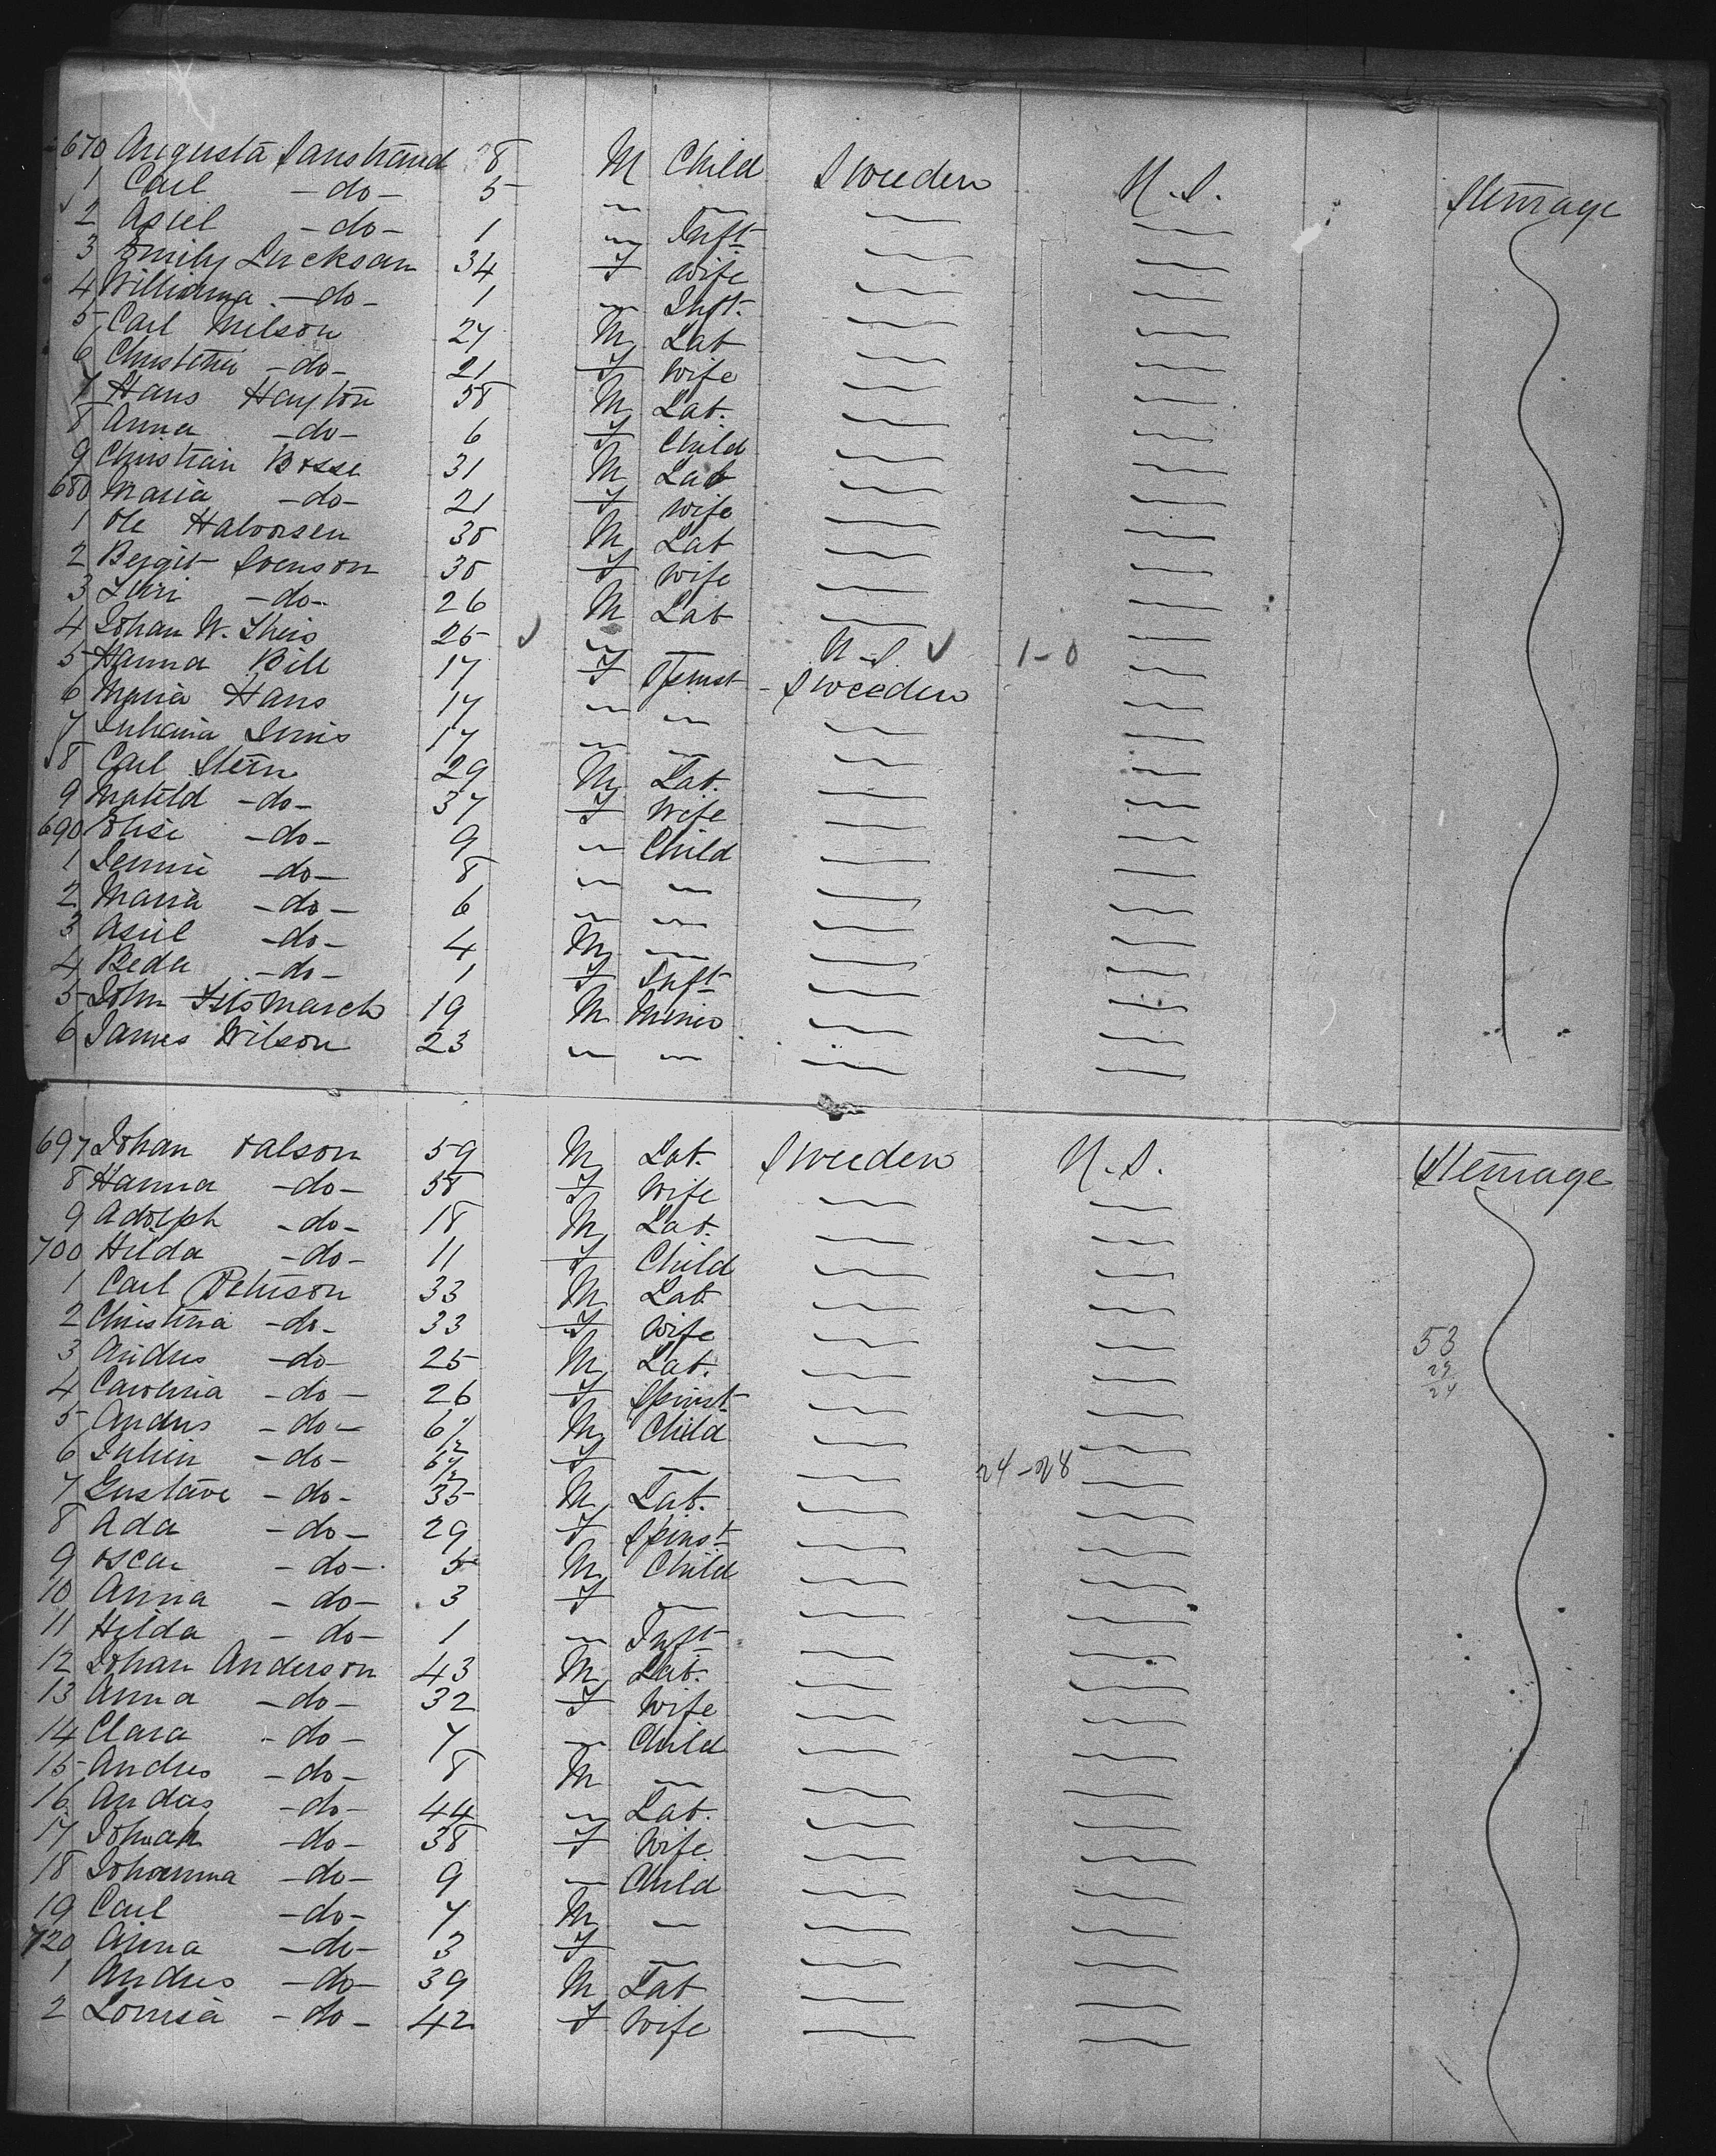 670 Augusta Sanstrand 8 M Child Sweeden U.S. Steerage
1 Carl -do- 5 " "
2 Axel -do- 1 " Inft
3 Emily Lucksan 34 F Wife
4 Williama -do- 1 " Inft.
5 Carl Nelson 27 M Lab
6 Christina -do- 21 F Wife
7 Hans Hayton 58 M Lab.
8 Anna -do- 6 F Child
9 Christian Bosse 31 M Lab
680 Maria -do- 21 F Wife
1 Ole Halvorsen 30 M Lab
2 Bergit Svenson 30 F Wife
3 -do- 26 M Lab
4 Johan W. Theis 25 " " U.S. 1-0
5 Hanna Bill 17 F Spinst Sweeden
6 Maria Hans 17 " "
7 17 " "
8 Carl Stern 29 M Lab.
9 Matild -do- 37 F Wife
690 Elise -do- 9 " Child
1 Jennie -do- 8 " "
2 Maria -do- 6 " "
3 Axel -do- 4 M "
4 Beda -do- 1 F Inft
5 John 19 M Miner
6 James Wilson 23 " "
697 Johan Oalson 59 M Lab. Sweeden U.S. Steerage
8 Hanna -do- 58 F Wife
9 Adolph -do- 18 M Lab.
700 Hilda -do- 11 F Child
1 Carl Peterson 33 M Lab.
2 Christina -do- 33 F Wife 53
3 Andres -do- 25 M Lab. 29
4 Carolina -do- 26 F Spinst 24
5 Andres -do- 6/12 M Child
6 -do- 6/12 F " 24-28
7 Gustave -do- 35 M Lab.
8 Ada -do- 29 F Spinst
9 Oscar -do- 5 M Child
10 Anna -do- 3 F "
11 Hilda -do- 1 " Inft
12 Johan Anderson 43 M Lab.
13 Anna -do- 32 F Wife
14 Clara -do- 7 " Child
15 Andres -do- 8 M "
16 Andas -do- 44 " Lab.
17 Johnah -do- 38 F Wife
18 Johanna -do- 9 " Child
19 Carl -do- 7 M "
720 Anna -do- 3 F "
1 Andres -do- 39 M Lab
2 Lovisa -do- 42 F Wife